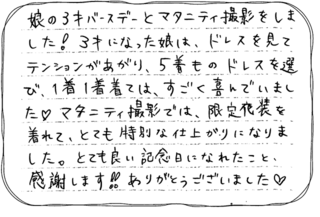 娘の3才バースデーとマタニティ撮影をしま
した！3才になった娘は、ドレスを見て
テンションがあがり、5着ものドレスを選
び、1着1着着ては、すごく喜んでいまし
た♡マタニティ撮影では、限定衣装を
着れて、とても特別な仕上がりになりま
した。とても良い記念日になれたこと、
感謝します!!ありがとうございました♡